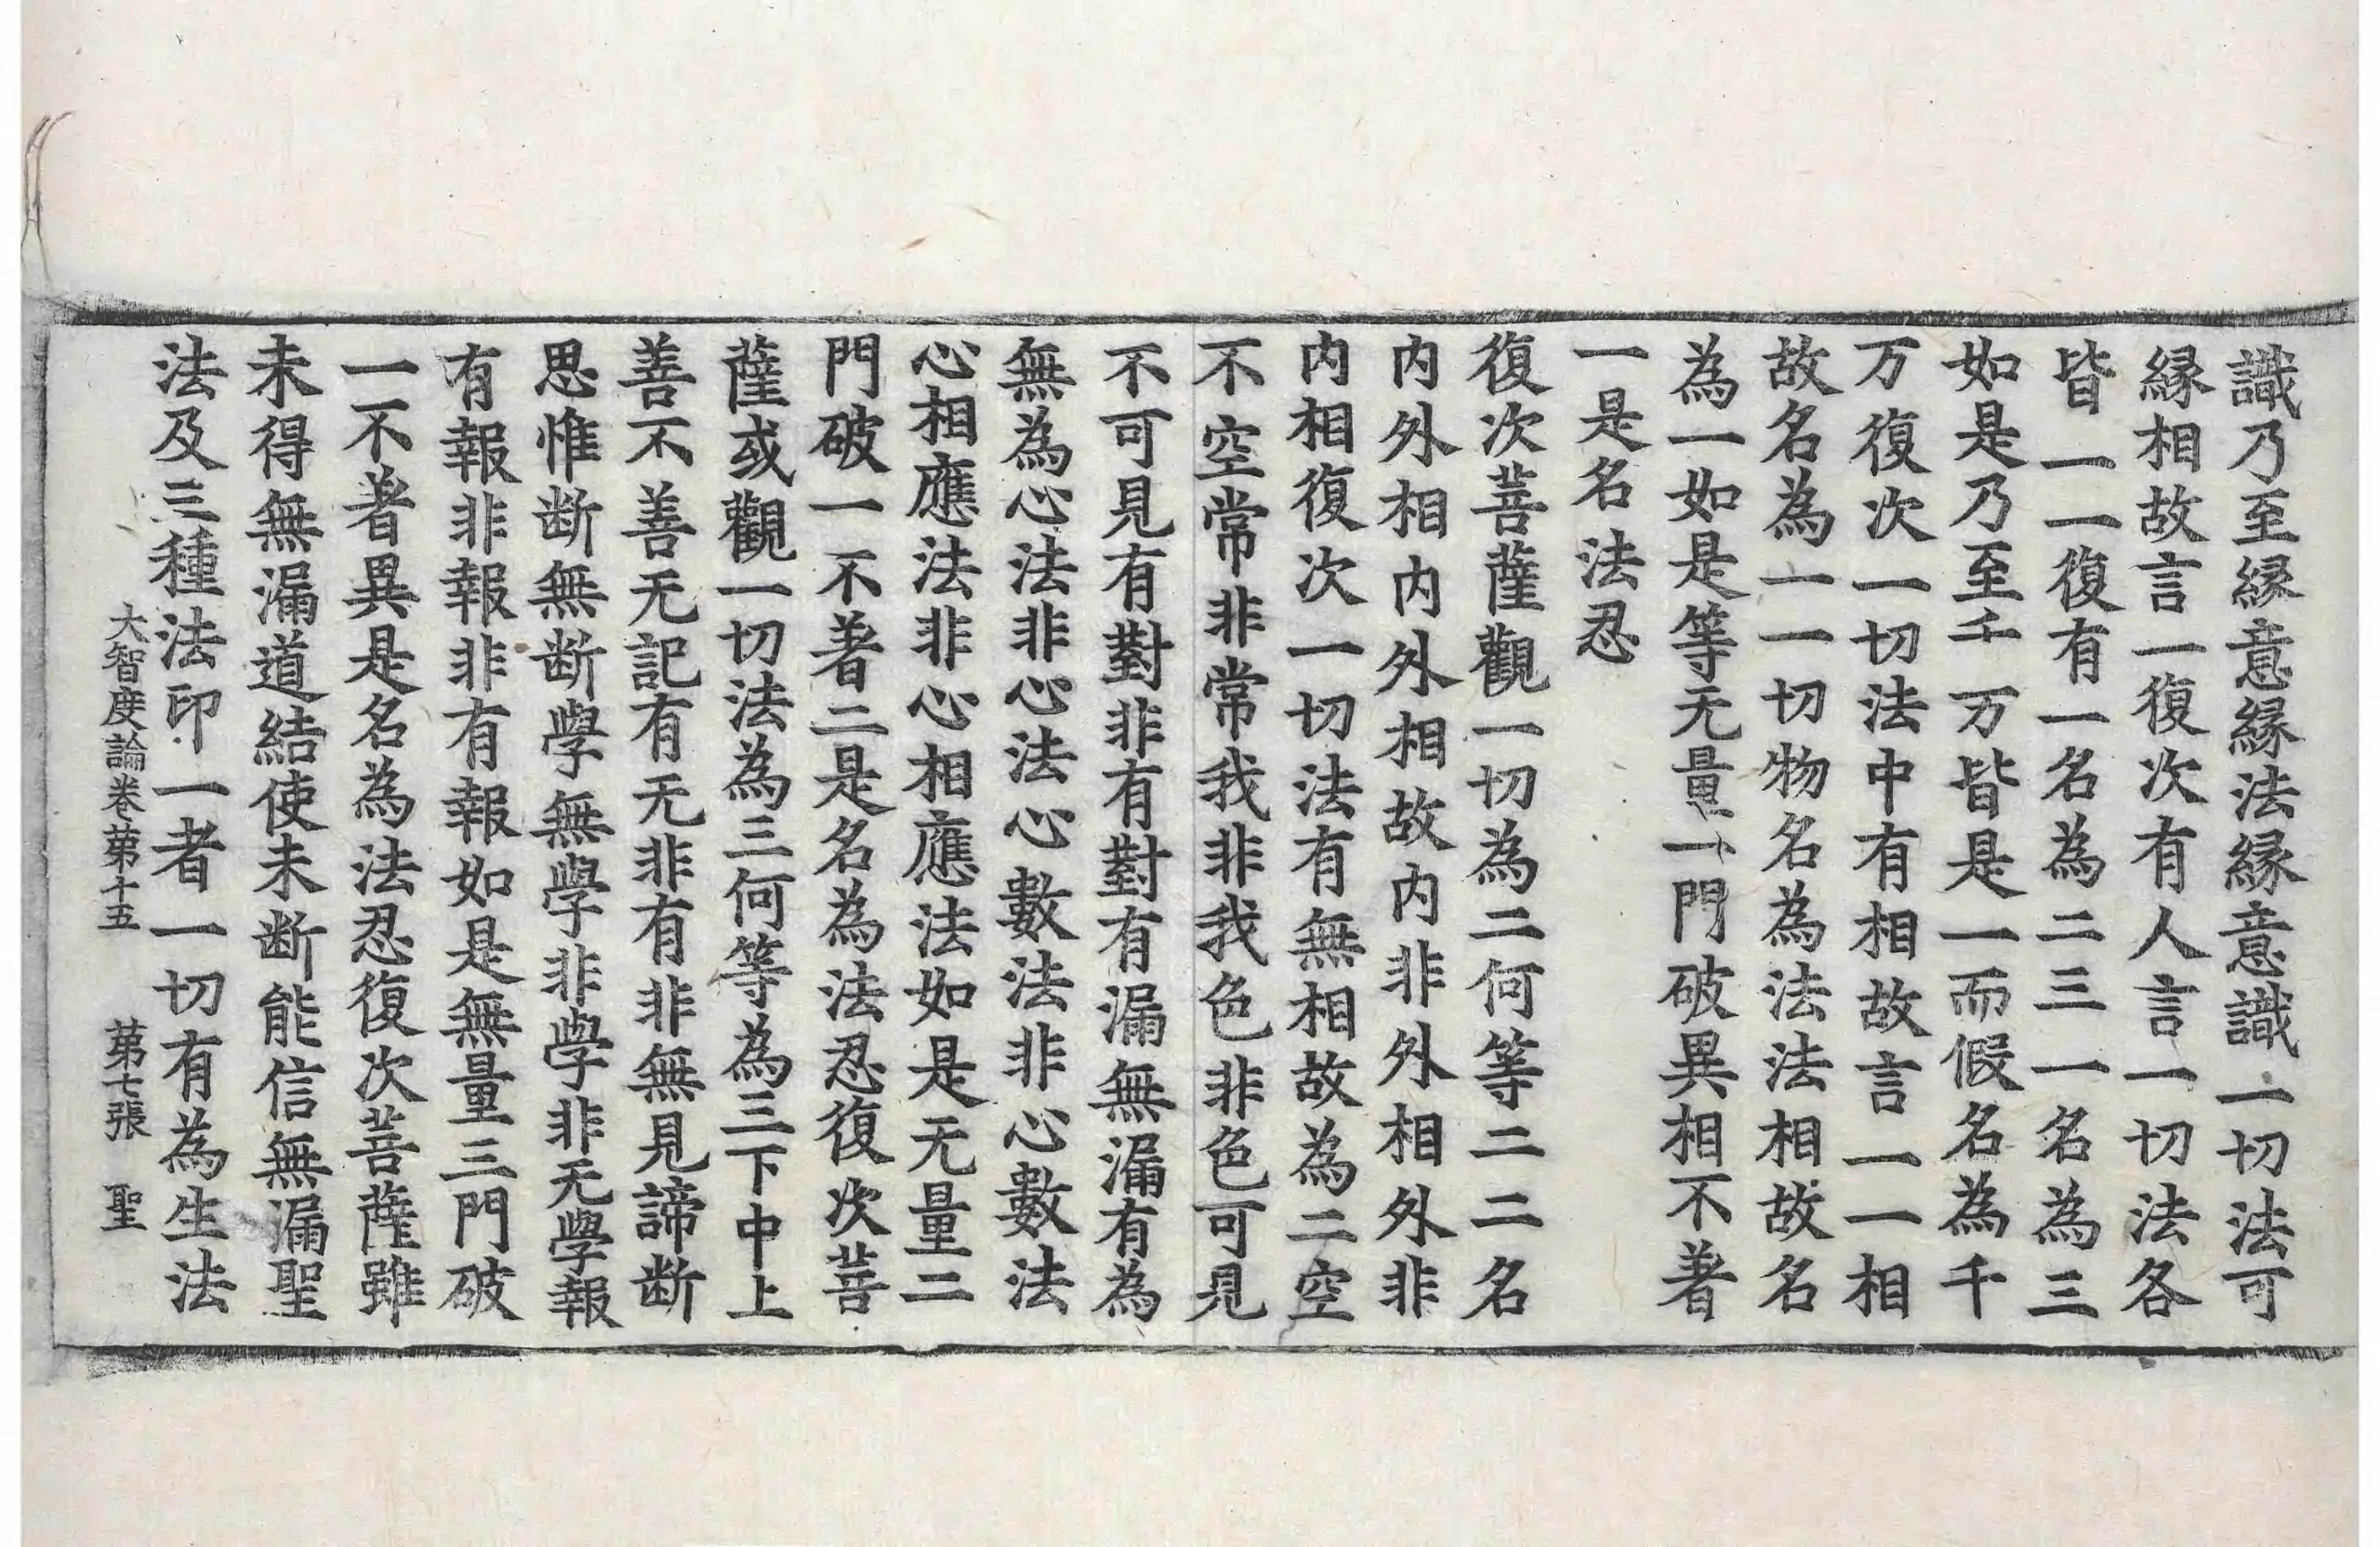 識乃至縁意縁法縁意識一切法可
縁相故言一復次有人言一切法各
皆一一復有一名為二三一名為三
如是乃至千万皆是一而假名為千
万復次一切法中有相故言一一相
故名為一一切物名為法法相故名
為一如是等无量一門破異相不著
一是名法忍
復次菩薩觀一切為二何等二二名
内外相内外相故内非外相外非
内相復次一切法有無相故為二空
不空常非常我非我色非色可見
不可見有對非有對有漏無漏有為
無為心法非心法心數法非心數法
心相應法非心相應法如是无量二
門破一不著二是名為法忍復次菩
薩或觀一切法為三何等為三下中上
善不善无記有无非有非無見諦断
思惟断無断學無學非學非无學報
有報非報非有報如是無量三門破
一不著異是名為法忍復次菩薩雖
未得無漏道結使未断能信無漏聖
法及三種法印一者一切有為生法
大智度論卷第十五 第七張 聖